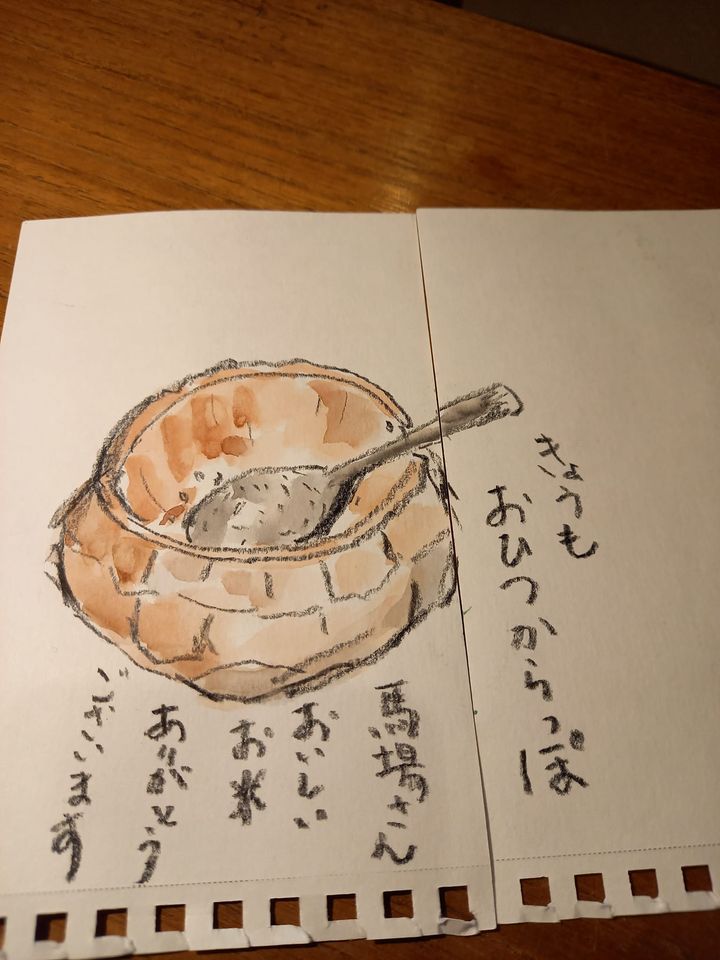 きょうも
おひつからっぽ
馬場さん
おいしい
お米
ありがとう
ございます